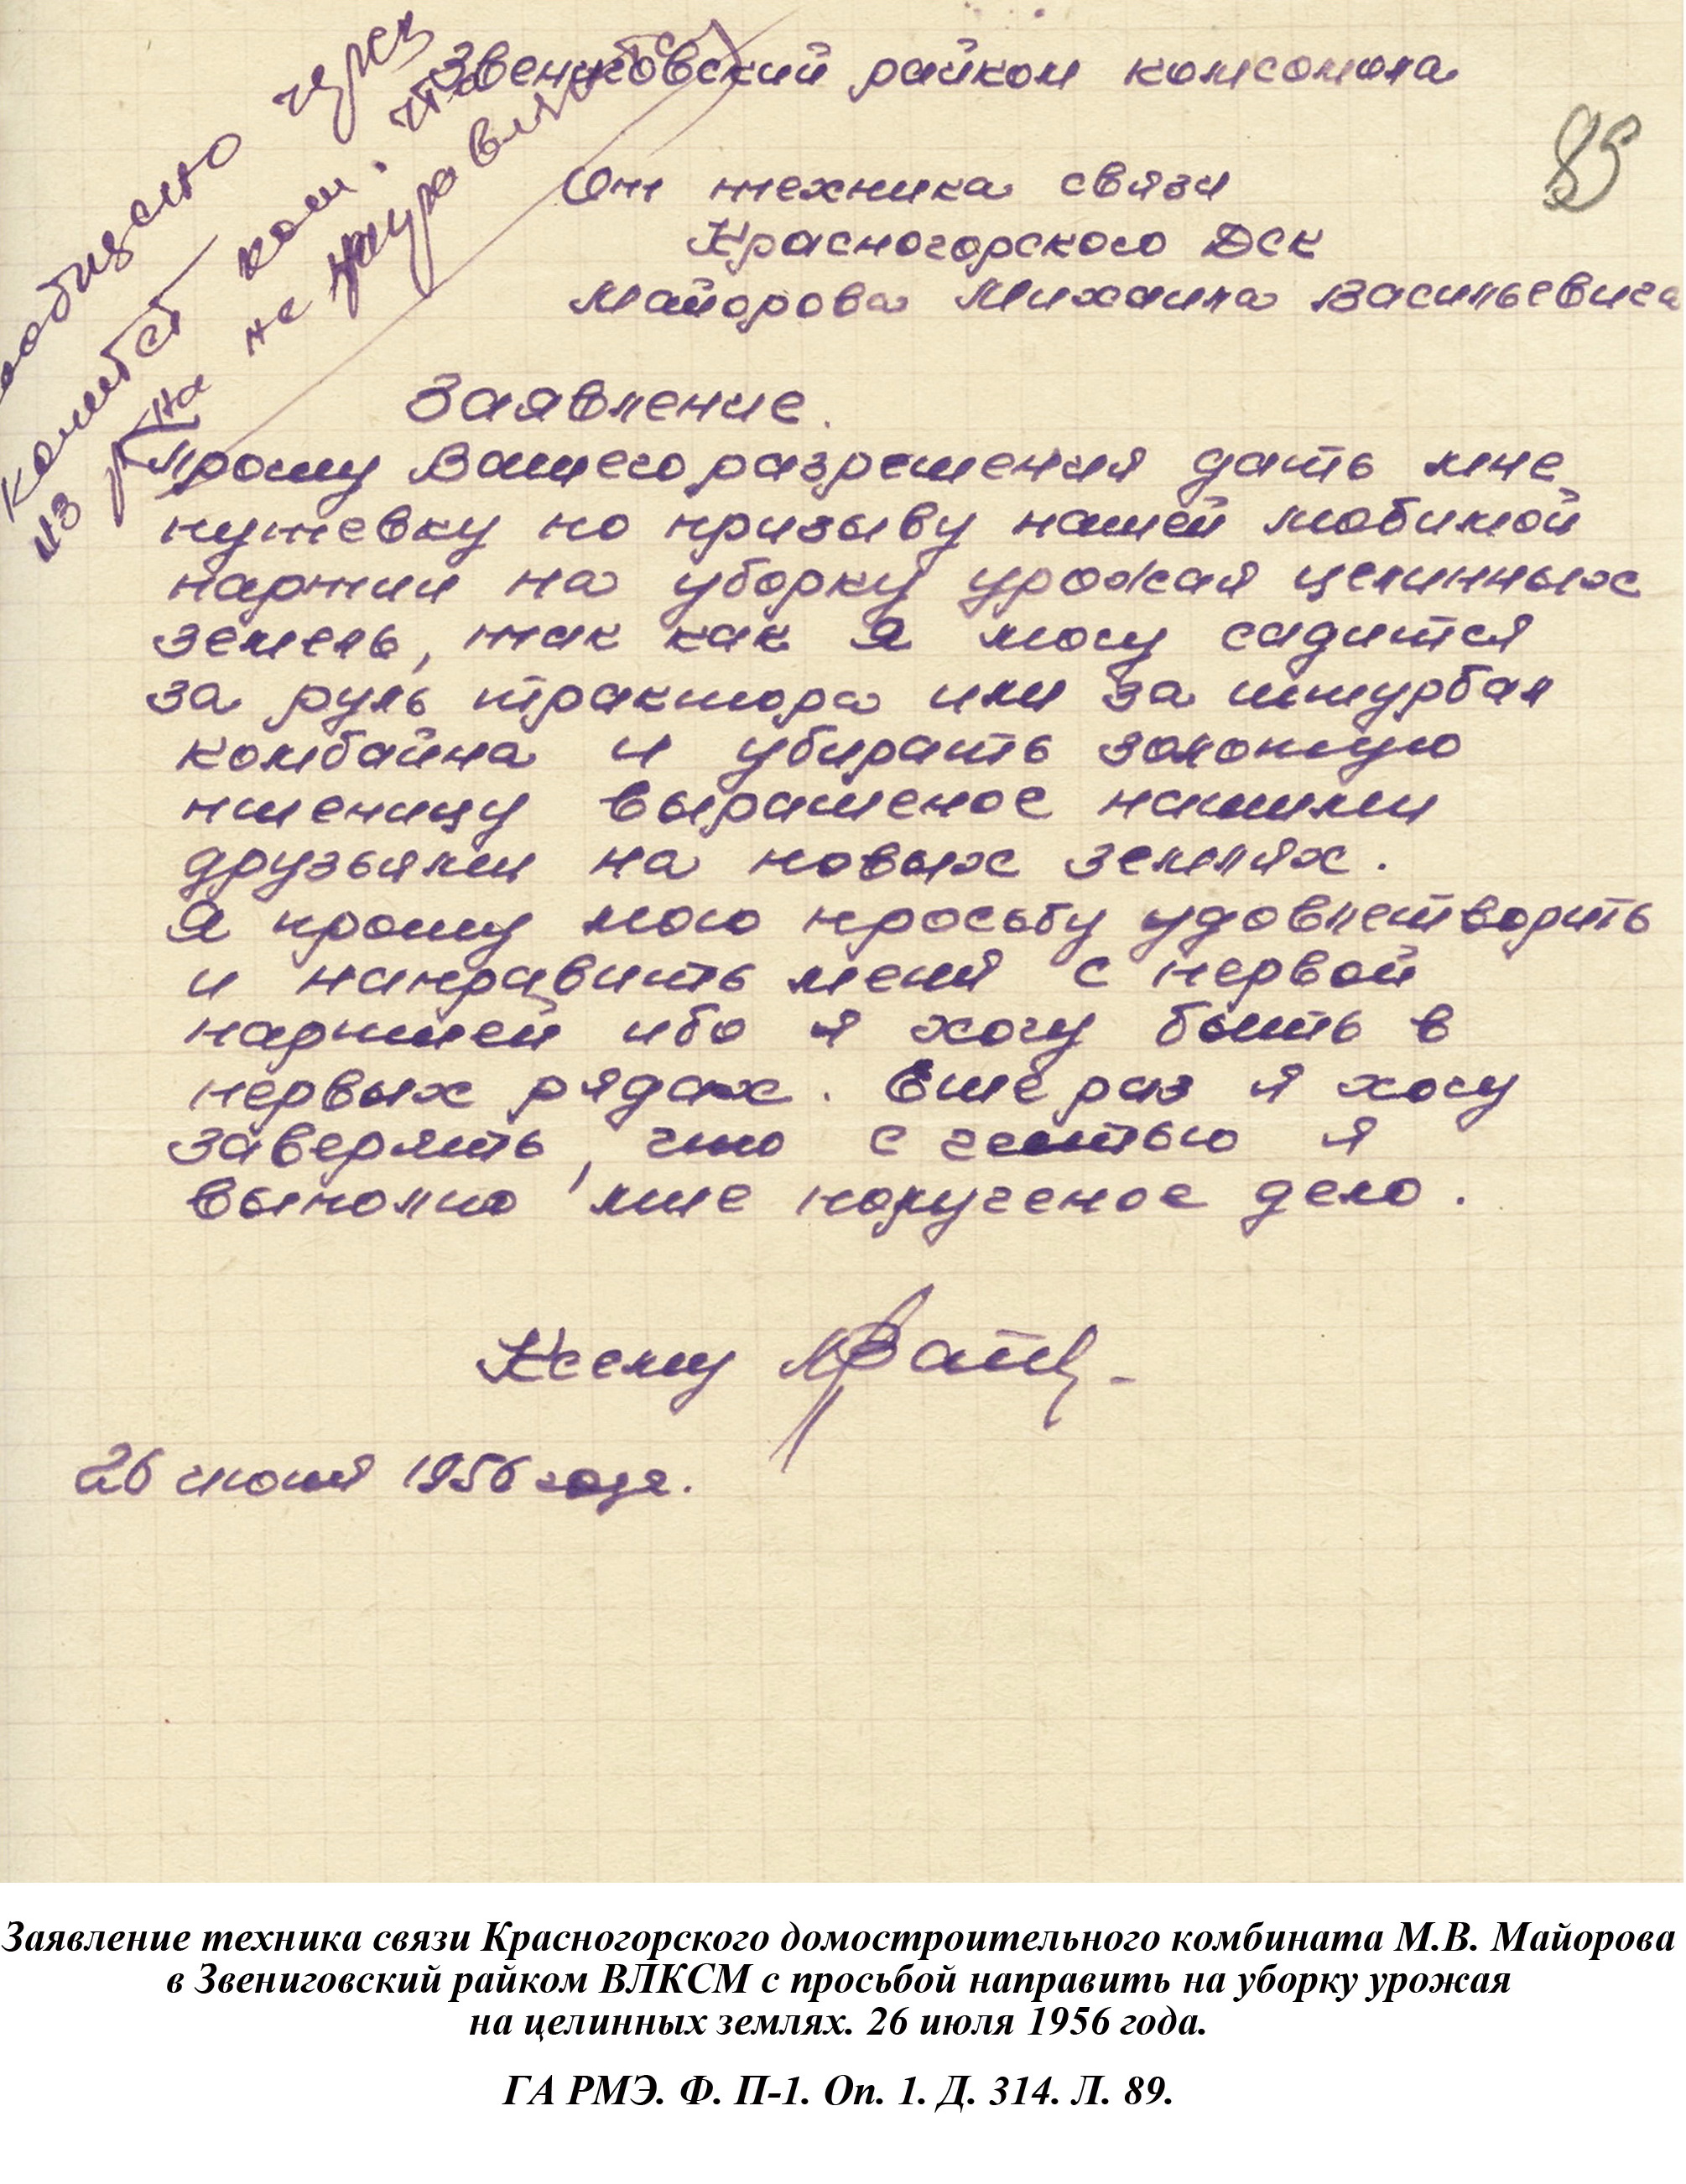 сообщено через
комитет ком. что
из р/на не направляются
Звениговский райком комсомола
89
От техника связи
Красногорского ДСК
Майорова Михаила Васильевича
Заявление.
Прошу Вашего разрешения дать мне
путевку по призыву нашей любимой
партии на уборку урожая целинных
земель, так как я могу садится
за руль трактора или за штурбал
комбайна и убирать золотую
пшеницу вырашеное нашими
друзьями на новых землях.
Я прошу мою просьбу удовлетворить
и направить меня с первой
партией ибо я хочу быть в
первых рядах. Еше раз я хочу
заверить, что с честью я
выполню мне поручено дело.
К сему
26 июля 1956 года.
Заявление техника связи Красногорского домостроительного комбината М.В. Майорова
в Звениговский райком ВЛКСМ с просьбой направить на уборку урожая
на целинных землях. 26 июля 1956 года.
ГА РМЭ. Ф. П-1. Оп. 1. Д. 314. Л. 89.